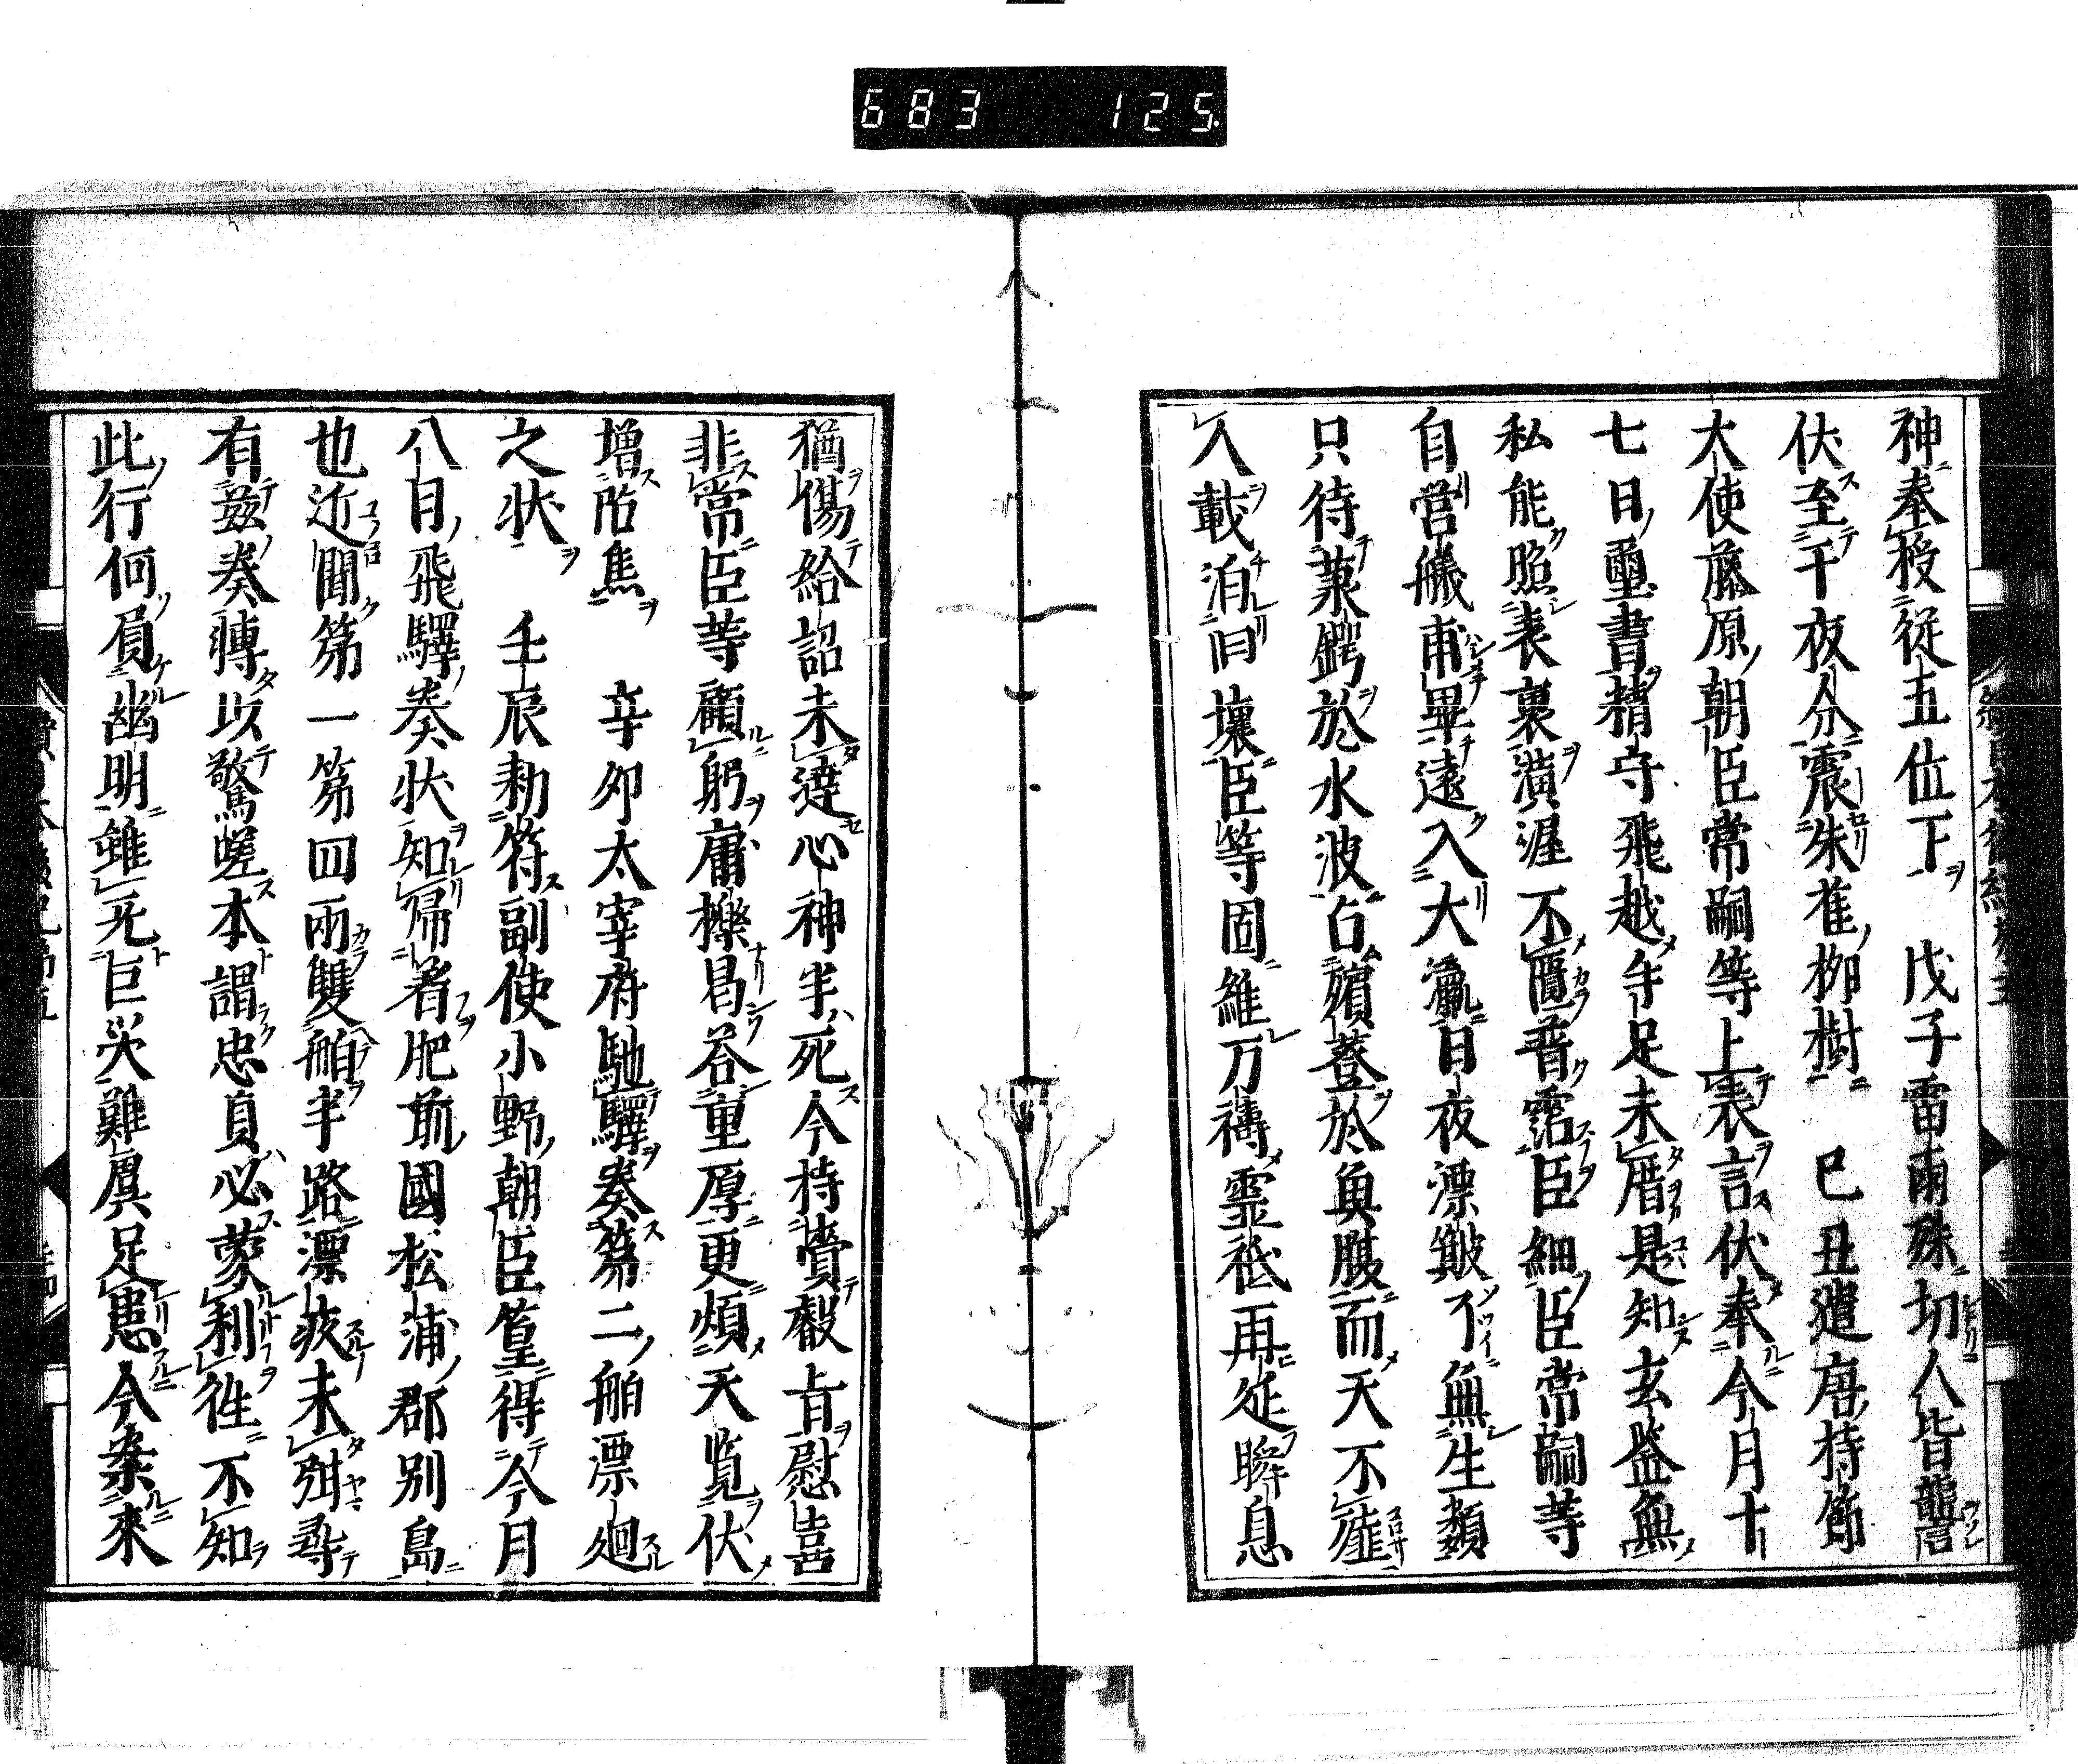 683 125
神奉授從五位下 戊子雷雨殊切人皆讋
伏至于夜分震朱雀柳樹 己丑遣唐持節
大使藤原朝臣常嗣等上表言伏奉今月十
七日璽書精守飛越手足未厝是知玄鉴無
私能照表裏潢渥不匱普霑臣細臣常嗣等
自營艤甫畢遠入大瀛日夜漂簸了無生類
只待葉鍔於水波占殯葬於魚腹而天不𧯷
入載泊旧壤臣等固維万禱靈祇再延瞬息
猶傷給詔未達心神半死今持賷叡旨慰喜
非常臣等顧躬庸擽曷荅重厚更煩天覧伏
增陷焦 辛卯太宰府馳驛奏第二舶漂廻
之狀 壬辰勅符副使小野朝臣篁得今月
八日飛驛奏狀知帰着肥前國松浦郡別島
也近聞第一第四兩雙舶半路漂疾未弭尋
有茲奏轉以驚嗟本謂忠貞必蒙利往不知
此行何負幽明雖元巨災難虞足患今案來